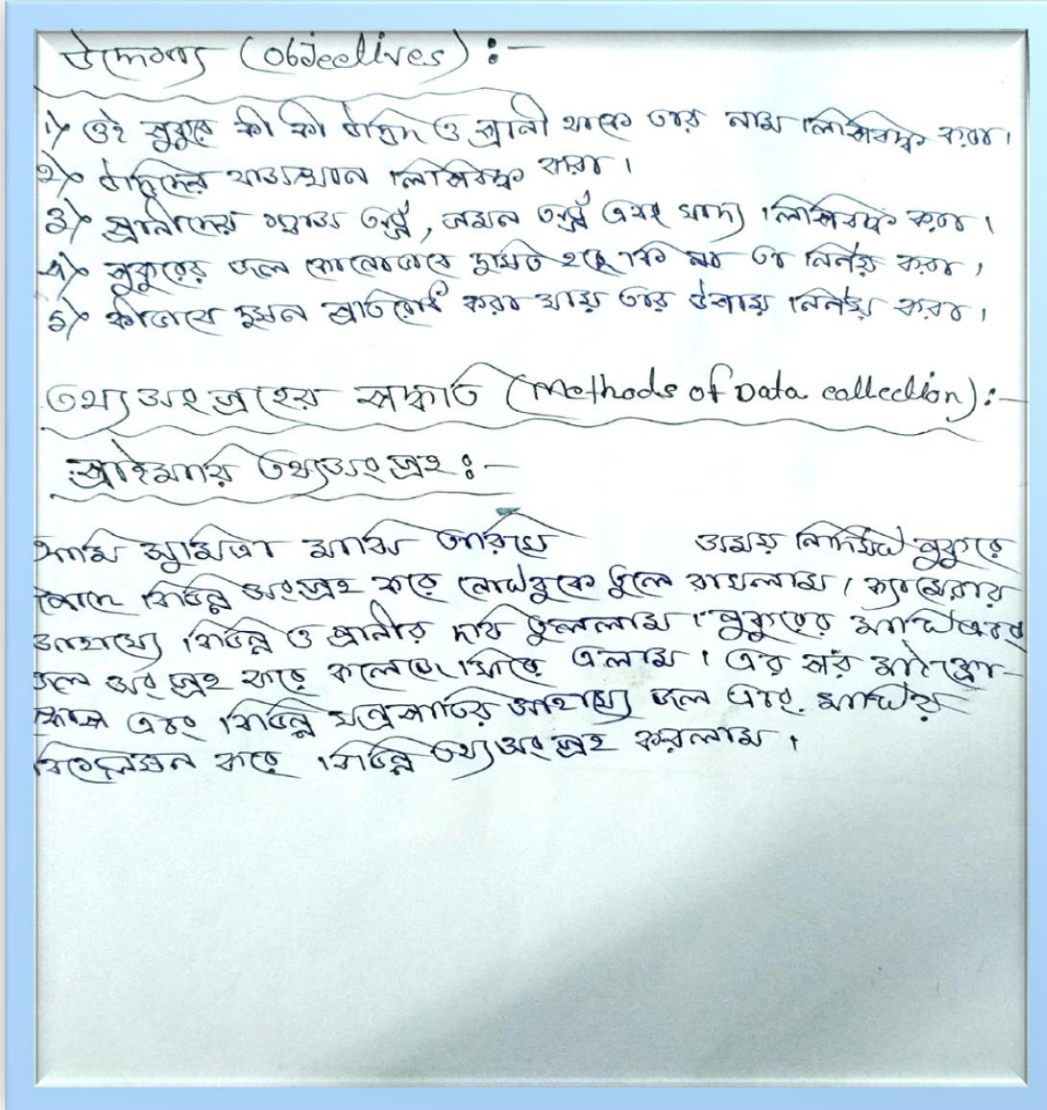 উদ্দেশ্য (objectives) :-
১) ওই পুকুরে কী কী উদ্ভিদ ও প্রানী থাকে তার নাম লিপিবদ্ধ করা।
২) উদ্ভিদের বাসস্থান লিপিবদ্ধ করা।
৩) প্রানীদের শ্বাস অঙ্গ, গমন অঙ্গ এবং খাদ্য লিপিবদ্ধ করা।
৪) পুকুরের জল কোনোভাবে দূষিত হচ্ছে কি না তা নির্নয় করা।
৫) কীভাবে দূষন প্রতিরোধ করা যায় তার উপায় নির্নয় করা।
তথ্য সংগ্রহের পদ্ধতি (Methods of Data collection) :-
প্রাইমারি তথ্যসংগ্রহ :-
আমি তারিখে সময় নির্দিষ্ট পুকুরে
বিভিন্ন সংগ্রহ করে নোটবুকে তুলে রাখলাম। ক্যামেরার
সাহায্যে বিভিন্ন ও প্রানীর ছবি তুললাম। পুকুরের মাটি এবং
জল সংগ্রহ করে কলেজে ফিরে এলাম। এর পর মাইক্রো-
এবং বিভিন্ন যন্ত্রপাতির সাহায্যে জল এবং মাটির
বিশ্লেষন করে বিভিন্ন তথ্য সংগ্রহ করলাম।